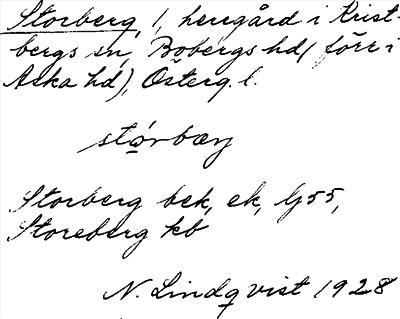 Storberg, 1, herrgård i Krist-
bergs sn, Bobergs hd (förr i
Aska hd), Österg. l.
stó̱rbœrj
Storberg bek, ek, G55,
Storeberg kb
N. Lindqvist 1928